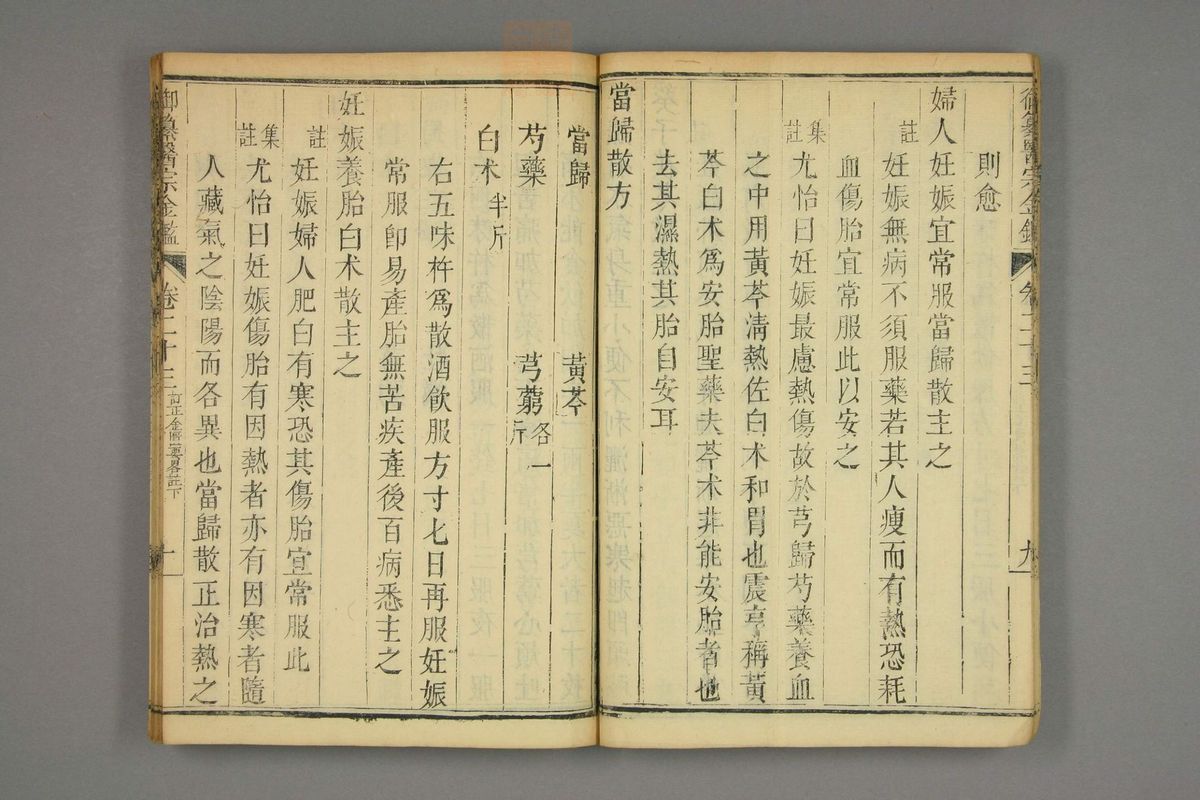 則愈
婦人妊娠宜常服當歸散主之
註 妊娠無病不須服藥若其人瘦而有熱恐耗
血傷胎宜常服此以安之
集註 尤怡曰妊娠最慮熱傷故於芎歸芍藥養血
之中用黃芩淸熱佐白术和胃也震亨稱黃
芩白术爲安胎聖藥夫芩术非能安胎者也
去其濕熱其胎自安耳
當歸散方
當歸 黃芩
芍藥 芎藭各一斤
白术半斤
右五味杵爲散酒飮服方寸匕日再服妊娠
常服卽易產胎無苦疾產後百病悉主之
妊娠養胎白术散主之
註 妊娠婦人肥白有寒恐其傷胎宜常服此
集註 尤怡曰妊娠傷胎有因熱者亦有因寒者隨
人藏氣之陰陽而各異也當歸散正治熱之
御纂醫宗金鑑 卷二十三 訂正金匱要畧註下 十
御纂醫宗金鑑 卷二十三 九